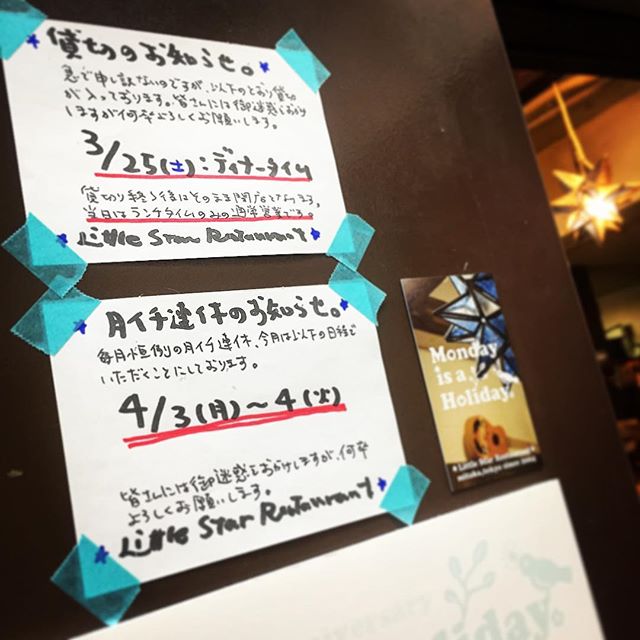 貸切のお知らせ。
急で申し訳ないのですが、以下のとおり貸切
が入っております。皆さんには御迷惑をおかけ
しますが何卒よろしくお願いします。
3/25(土):ディナータイム
貸切り終了後はそのまま閉店となります。
当日はランチタイムのみの通常営業です。
Little Star Restaurant
月イチ連休のお知らせ。
毎月恒例の月イチ連休、今月は以下の日程で
いただくことにしております。
4/3(月)〜4(火)
皆さんには御迷惑をおかけしますが、何卒
よろしくお願いします。
Little Star Restaurant
Monday
is a
Holiday.
Little Star Restaurant
iversary
liday.